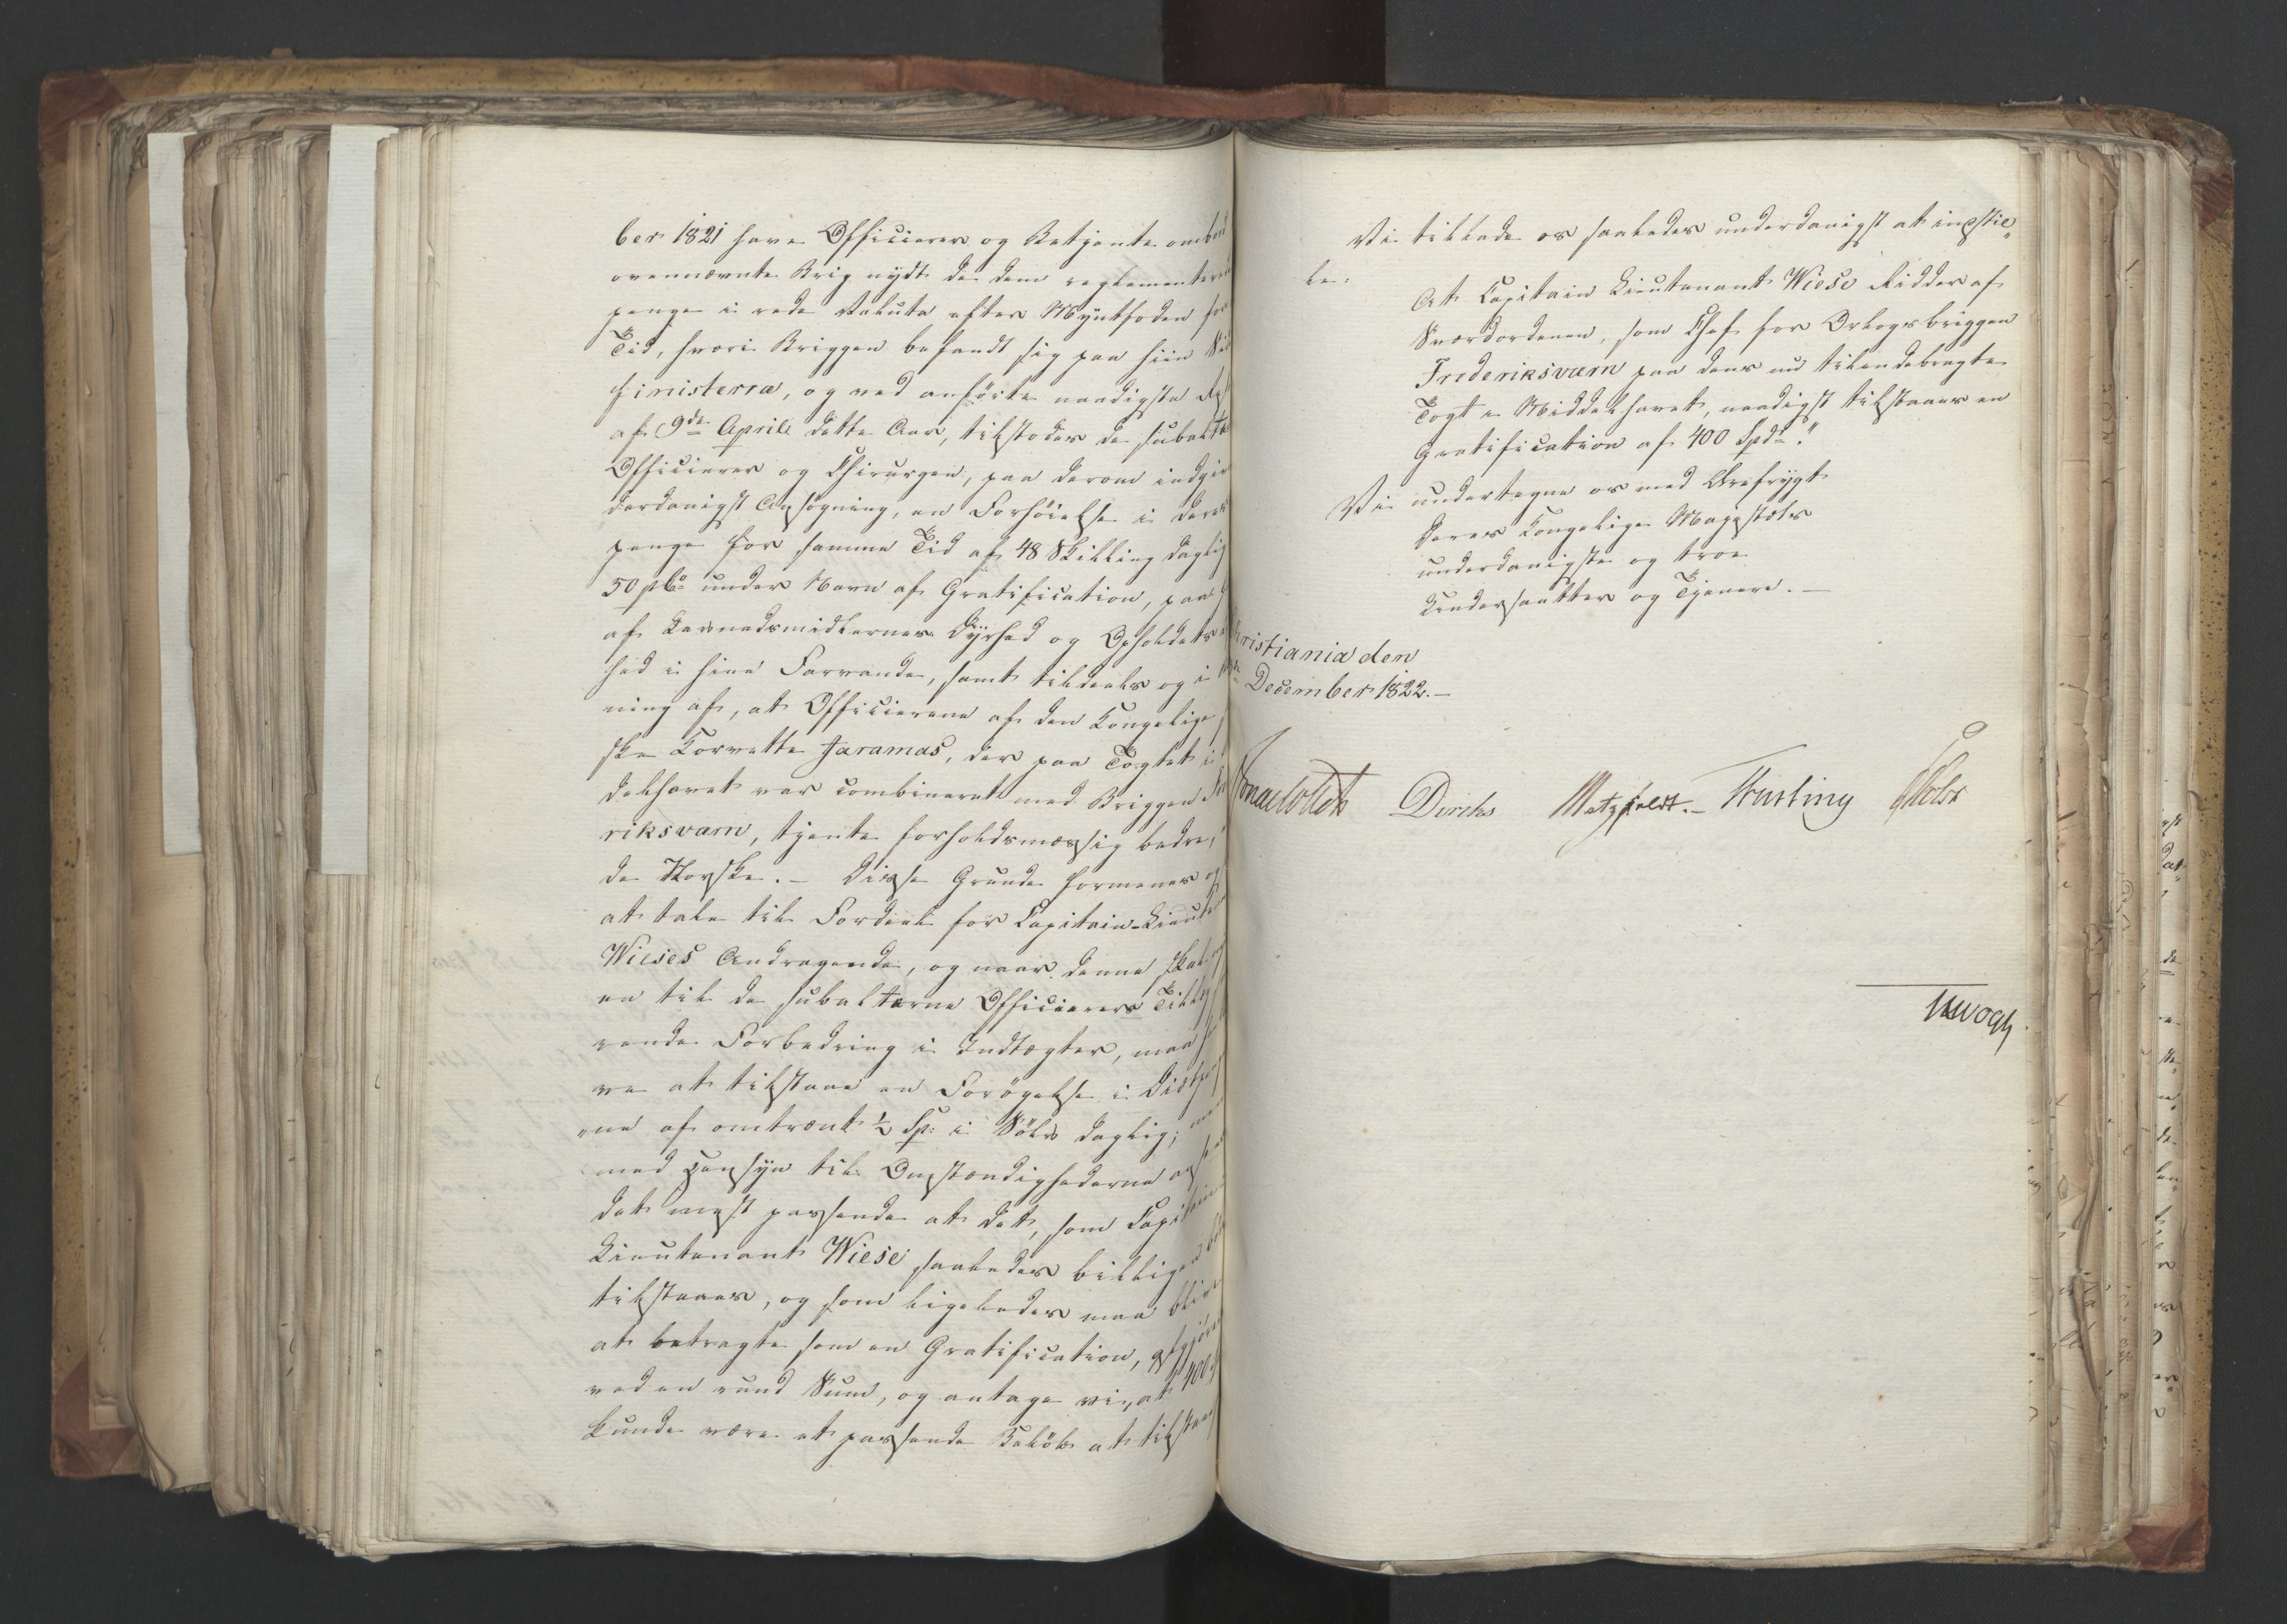 ber 1821 have Officierer og Betjente ombord
ovennævnte Brig nydt de dem reglementerede
penge i rede Valuta efter Myntfoden for
Tid, hvori Briggen befandt sig paa hiin Side
Finisterra, og ved anförte naadigste Res
af 9de Aprili dette Aar, tilstodes de subalterne
Officierer og Chirurgen, paa derom indgiv
derdanigst Ansögning, en Forhöielse i deres
penge for samme Tid af 48 Skilling daglig
50 pCo under Navn af Gratification, paa
af Levnedsmidlernes Dyrhed og Opholdets
hed i hine Farvande, samt tildeels og i
ning af, at Officierene af den Kongelige
ske Korvette Jaramas, der paa Togtet i
delhavet var combineret med Briggen Fre
riksværn, tjente forholdsmæssig bedre,
de Norske. – Disse Grunde formenes og
at tale til Fordeel for Capitain-Lieute
Wieses Andragende, og naar denne skal
en til de subalterne Officierers Tillæg
rende Forbedring i Indtægter, maa
ve at tilstaae en Forögelse i Diætpen
ene af omtrent ½ Sp: i Sölv daglig; men
med Hensyn til Omstændighederne ansee
det meest passende at det, som Capitain
Lieutenant Wiese saaledes billigen bör
tilstaaes, og som ligeledes maa blive
at betragte som en Gratification, afgjöres
ved en rund Sum, og antage vi, at 400 Sp
kunde være et passende Belöb at tilstaae
Vi tillade os saaledes underdanigst at indstil„
le:
At Capitain Lieutenant Wiese Ridder af
Sværdordenen, som Chef for Orlogsbriggen
Frederiksværn paa dens nu tilendebragte
Togt i Middelhavet, naadigst tilstaaes en
Gratification af 400 Spdr."
Vi undertegne os med Ærefrygt
Deres Kongelige Majestæts
underdanigste og troe
Undersaatter og Tjenere. –
Christiania den
December 1822. –
Diriks Motzfeldt. – Krebs